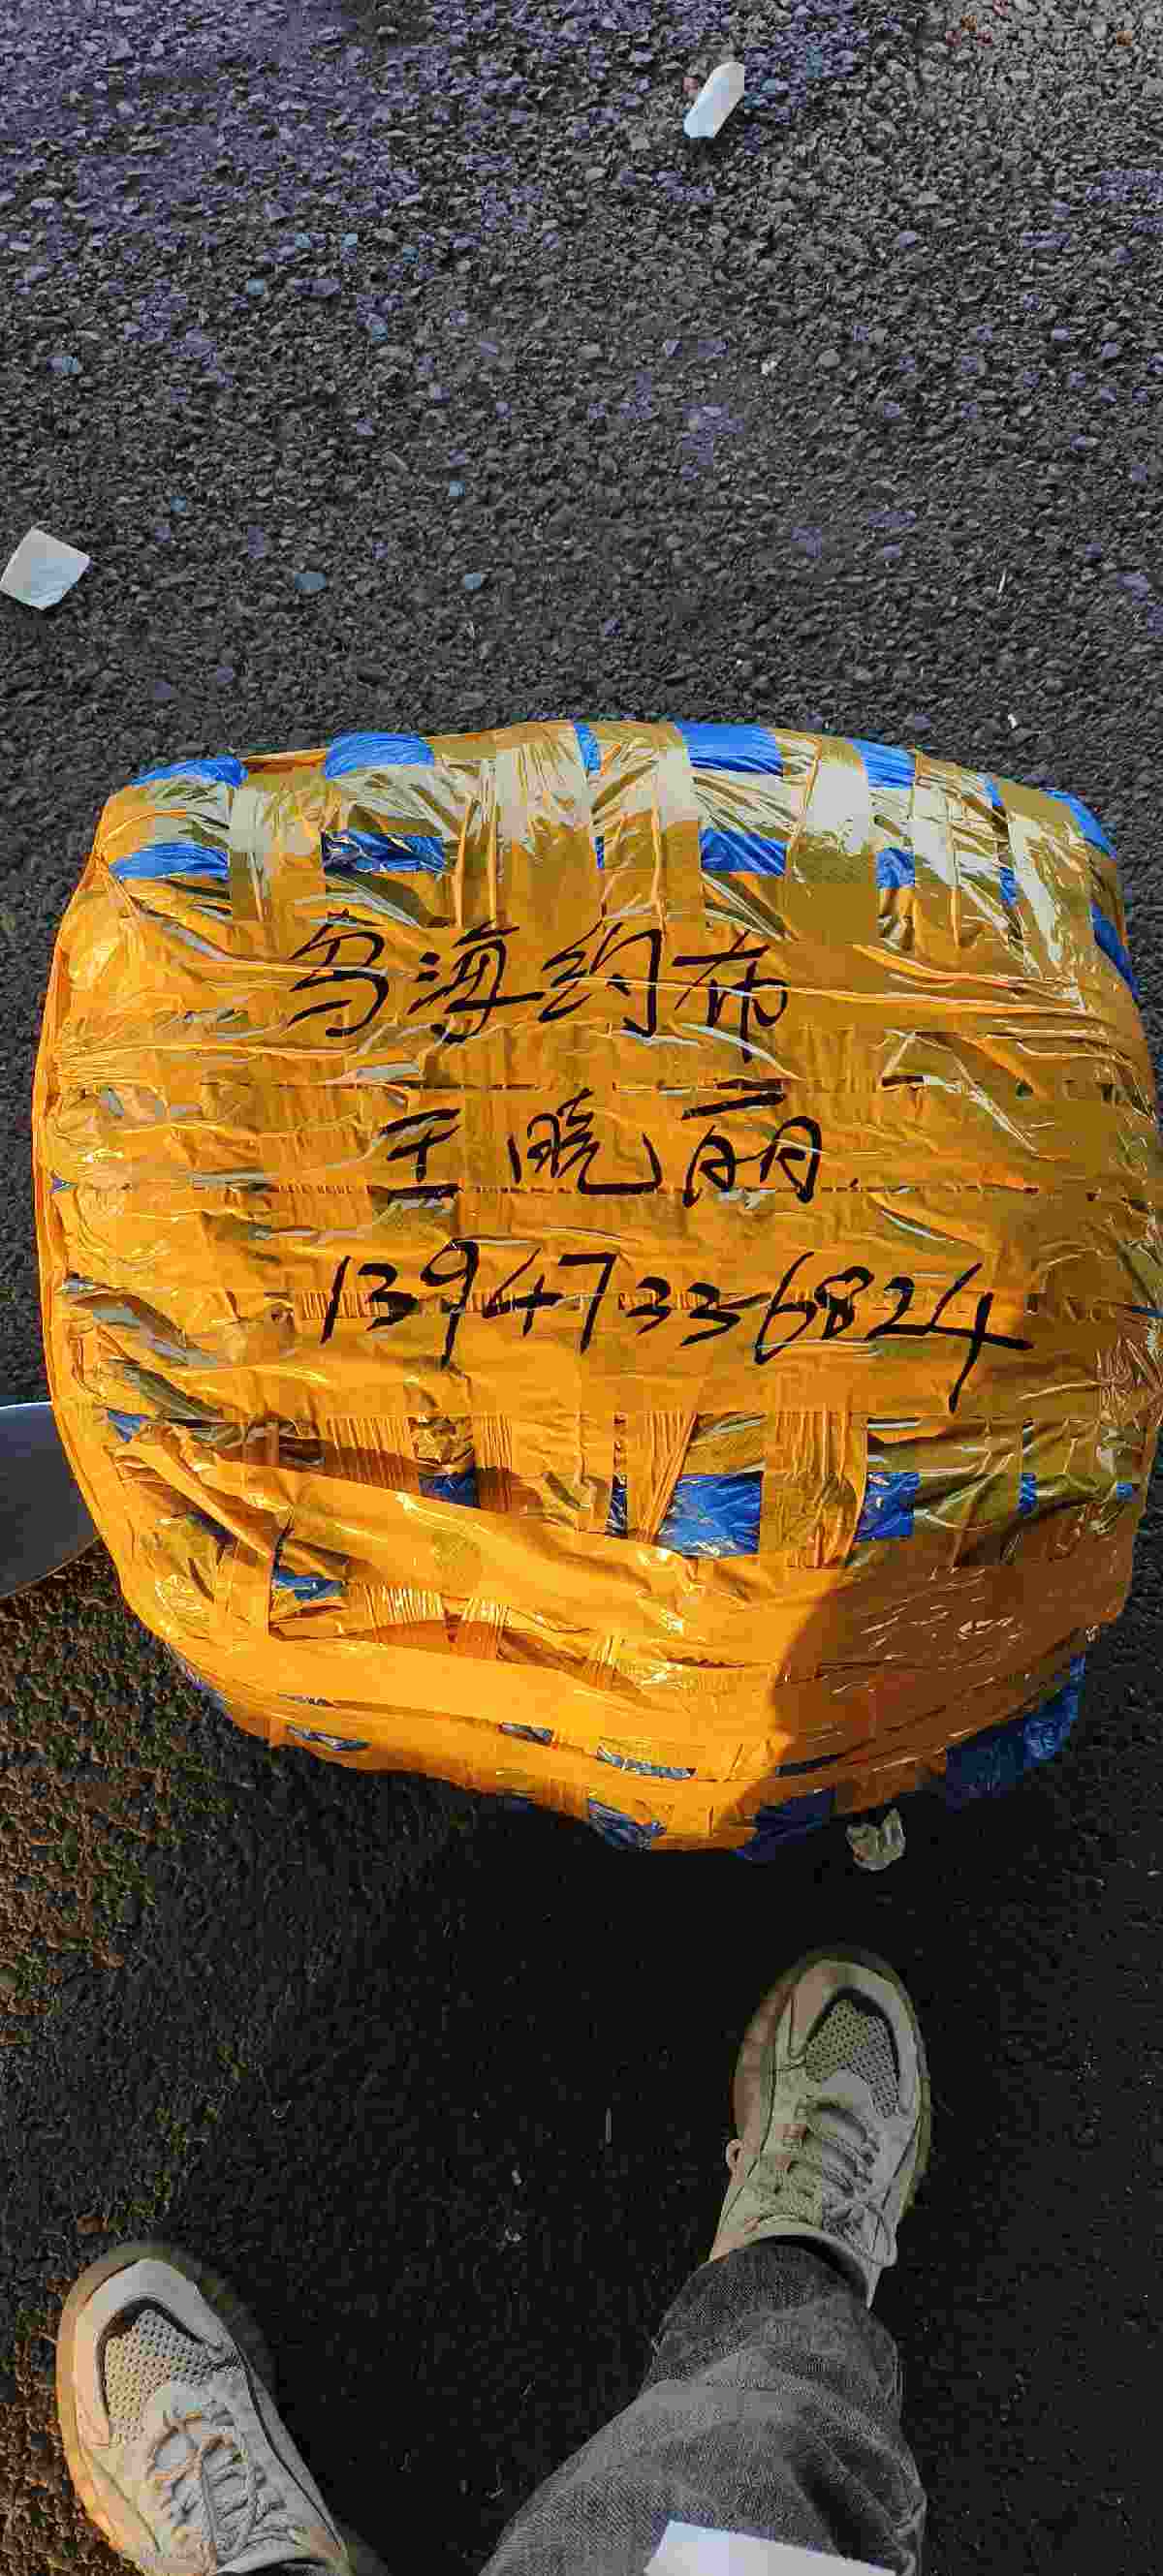 乌海约布
王晓丽
13947336824